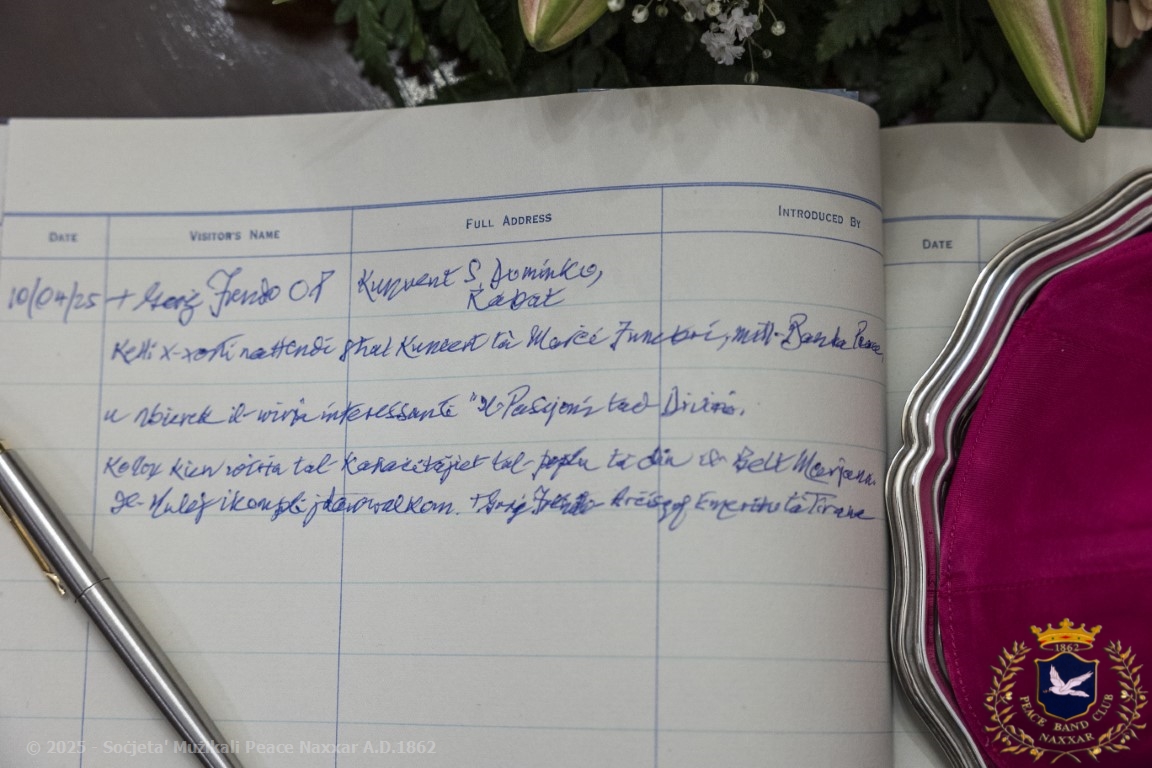 DATE VISITOR'S NAME FULL ADDRESS INTRODUCED BY DATE
10/04/25 + Ġorġ Frendo OP Kunvent S. Dominku,
Rabat
Kelli x-xorti nattendi għal Kunċert ta' Marċi Funebri, mill-Banda Peace,
u nbierek il-wirja interessanti "Il-Passjoni tad-Divin".
Kollox kien xhieda tal-kapaċitajiet tal-poplu ta' din
Il-Mulej ikompli jbierikom. + Ġorġ Frendo - Arċisqof Emeritu ta' Tirana
1862
PEACE BAND CLUB
NAXXAR
© 2025 - Soċjeta' Mużikali Peace Naxxar A.D.1862